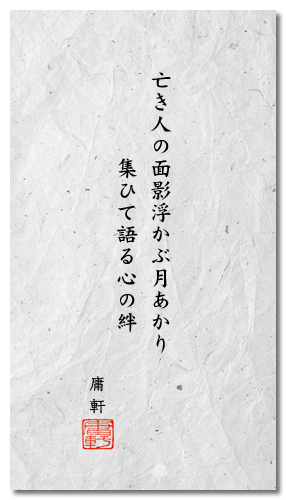 亡き人の面影浮かぶ月あかり
集ひて語る心の絆
庸軒
庸軒